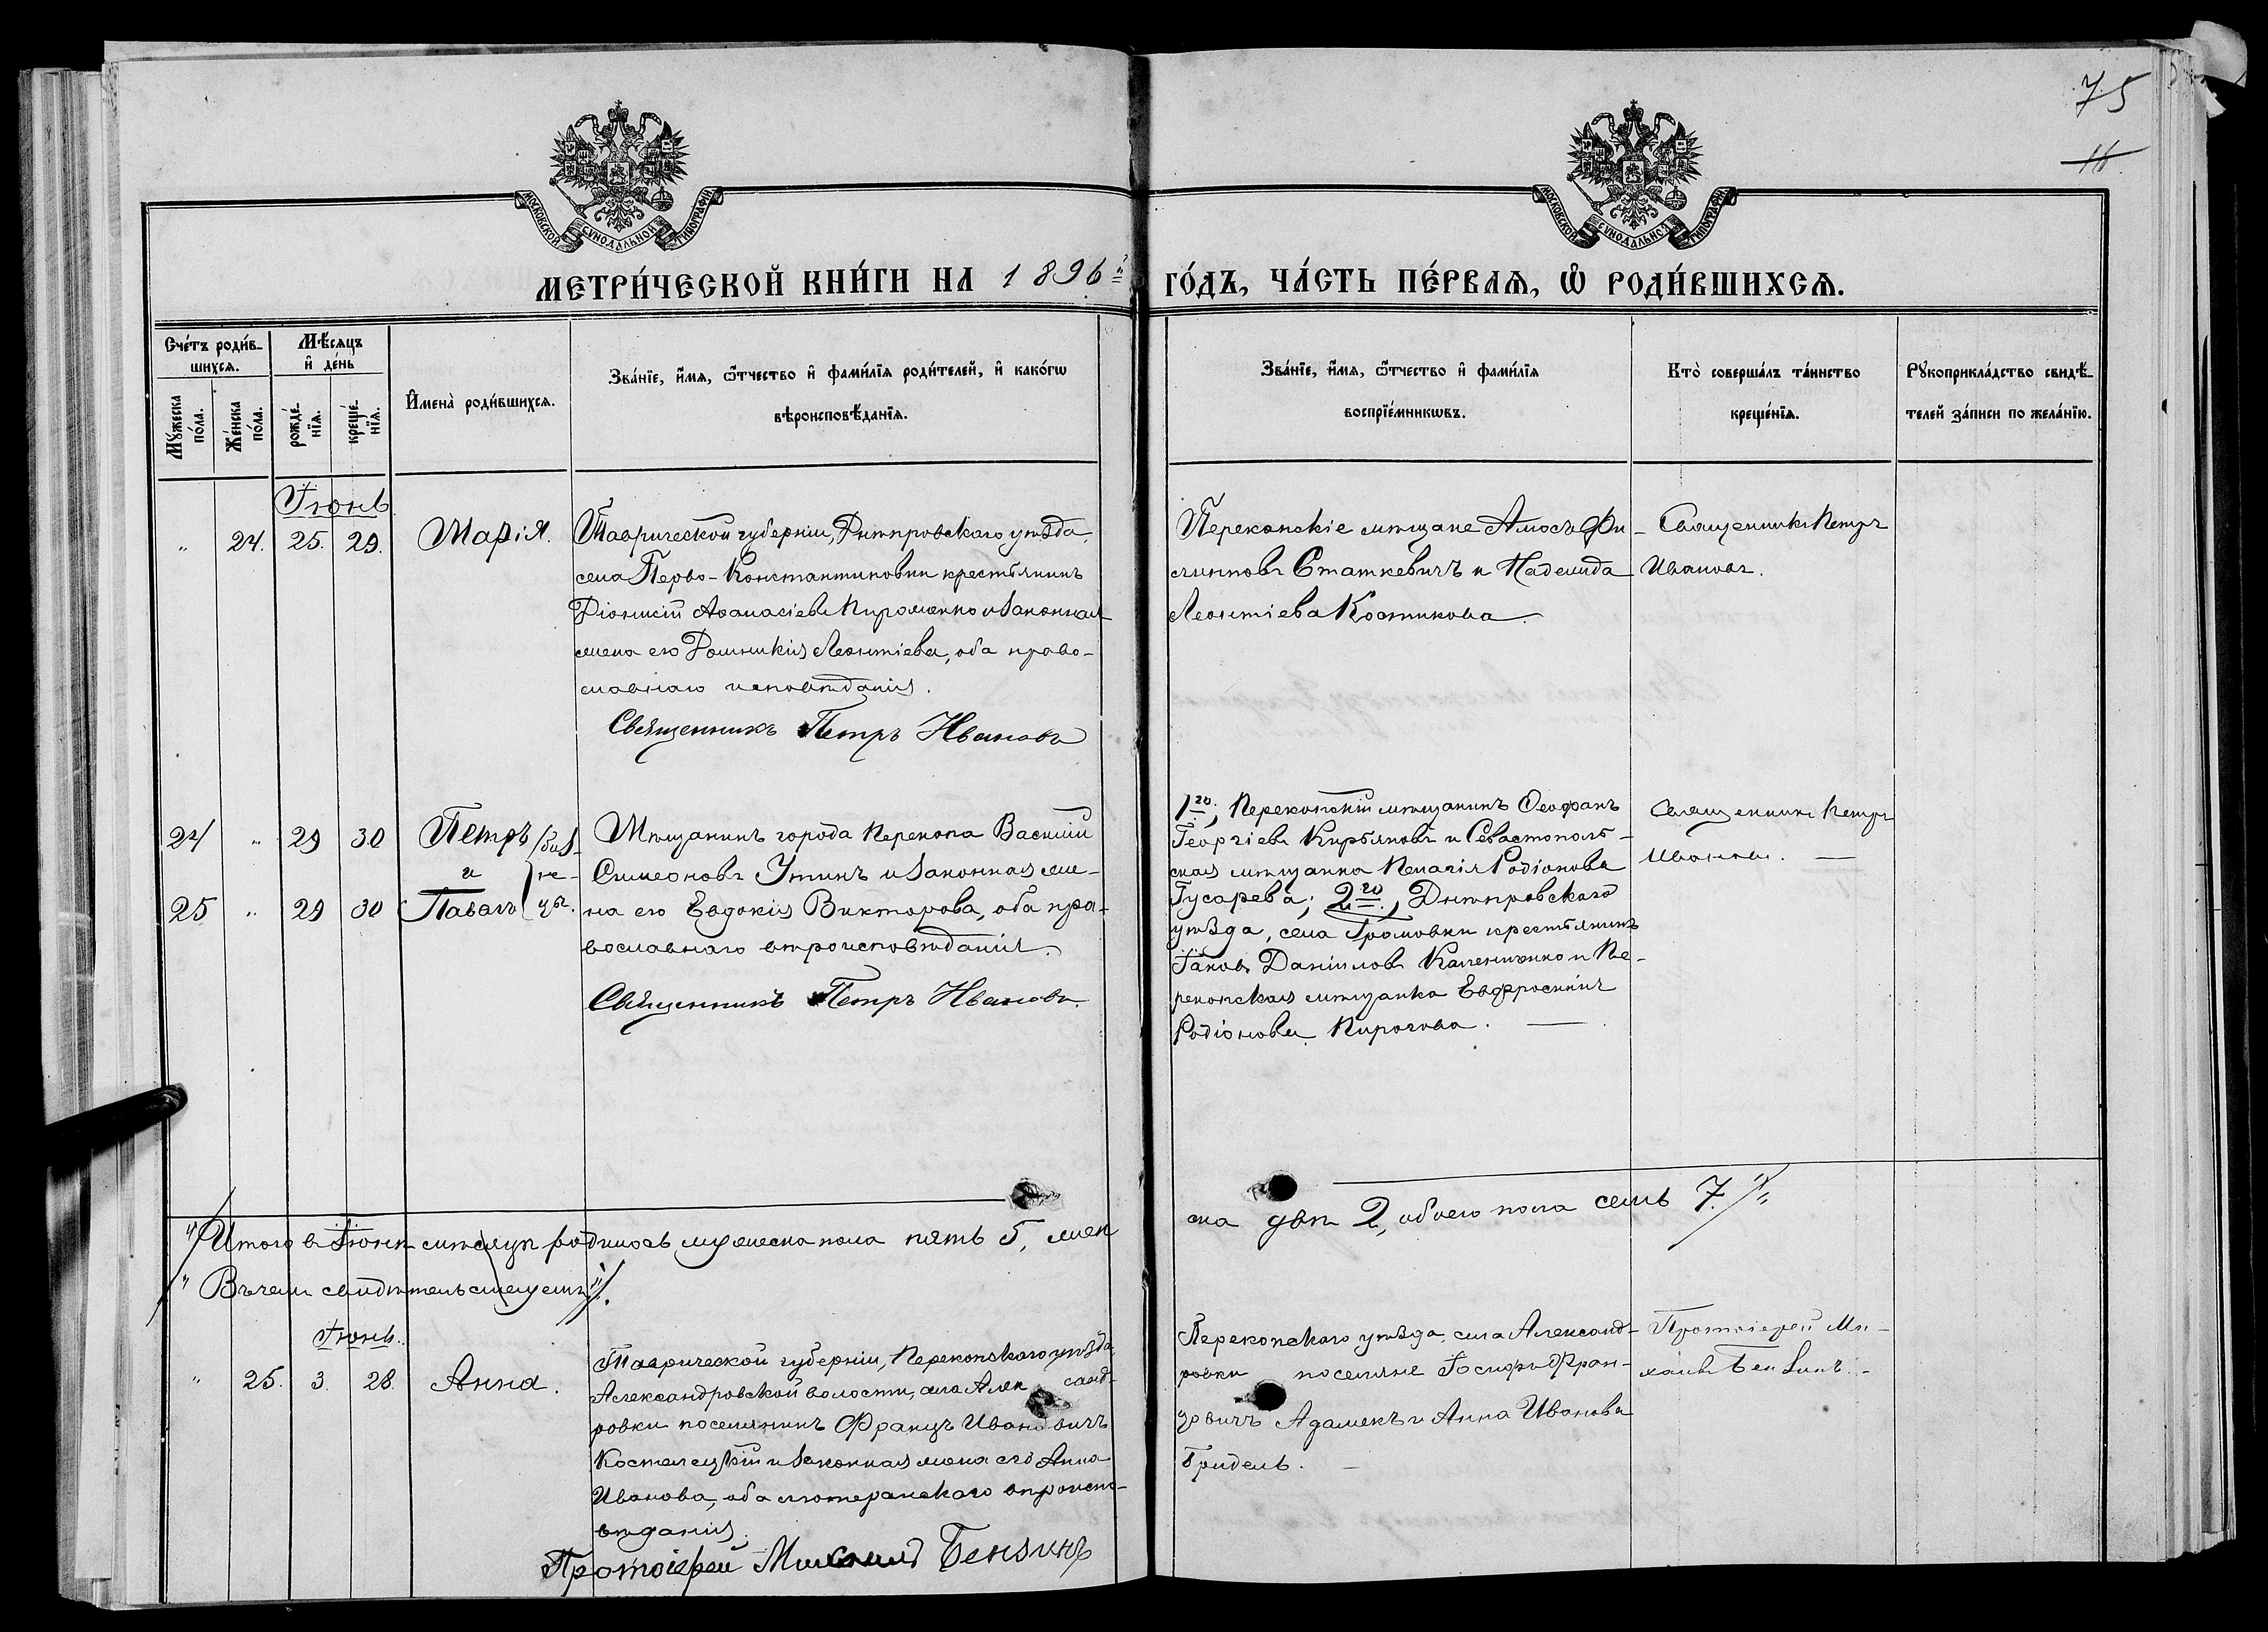 75
16
МОСКОВСКОЙ СѴНОДАЛЬНОЙ ТИПОГРАФІИ
МОСКОВСКОЙ СѴНОДАЛЬНОЙ ТИПОГРАФІИ
МЕТРИ́ЧЕСКОЙ КНИ́ГИ НА 1896й ГО́ДЪ, ЧА́СТЬ ПЕ́РВАѦ, Ѡ҆ РОДИ́ВШИХСѦ.
Сче́тъ роди́в-
шихсѧ.
Мѣ́сѧцъ
и҆ де́нь
Мꙋ́жеска по́ла.
Же́нска по́ла.
рожде́-нїѧ.
креще́-нїѧ.
И҆мена̀ роди́вшихсѧ.
Зва́нїе, и҆́мѧ, ѻ҆́тчество и҆ фами́лїѧ роди́телей, и҆ како́гѡ
вѣроисповѣ́данїѧ.
Зва́нїе, и҆́мѧ, ѻ҆́тчество и҆ фами́лїѧ
воспрїе́мникѡвъ.
Кто̀ соверша́лъ та́инство
креще́нїѧ.
Рꙋкоприкла́дство свидѣ́-
телей за́писи по жела́нїю.
Іюнь
" 24. 25. 29. Марія.
Таврической губерніи, Днѣпровскаго уѣзда,
села Перво-Константиновки крестьянинъ
Діонисій Аѳанасіевъ Пироженко и законная
жена его Домникія Леонтіева, оба право-
славнаго исповѣданія.
Священникъ Петръ Ивановъ
Перекопскіе мѣщане Амосъ Фи-
липповъ Статкевичъ и Надежда
Леонтіева Костикова.
Священникъ Петръ
Ивановъ.
24 " 29 30 Петръ
и
25 " 29 30 Павелъ
близ-
не-
цы.
Мѣщанинъ города Перекопа Василій
Симеоновъ Утинъ и законная же-
на его Евдокія Викторова, оба пра-
вославнаго вѣроисповѣданія.
Священникъ Петръ Ивановъ.
1го, Перекопскій мѣщанинъ Ѳеофанъ
Георгіевъ Кирьяновъ и Севастополь-
ская мѣщанка Пелагія Родіонова
Гусарева; 2го, Днѣпровскаго
уѣзда, села Громовки крестьянинъ
Іаковъ Даніиловъ Калениченко и Пе-
рекопская мѣщанка Евфросинія
Родіонова Пирогова.
Священникъ Петръ
Ивановъ.
Итого въ Іюнѣ мѣсяцѣ родилось мужеска пола пять 5, жен
ска двѣ 2, обоего пола семь 7.
Въ чемъ свидѣтельствуемъ
Іюнь.
" 25. 3. 28. Анна.
Таврической губерніи, Перекопскаго уѣзда,
Александровской волости, села Алек санд-
ровки поселянинъ Францъ Ивановичъ
Костелецкій и законная жена его Анна
Иванова, оба лютеранскаго вѣроиспо-
вѣданія.
Протоіерей Михаилъ Бензинъ
Перекопскаго уѣзда, села Александ-
ровки поселяне Іосифъ Фран-
цовичъ Адамекъ и Анна Иванова
Гридель.
Протоіерей Ми-
хаилъ Бензинъ.